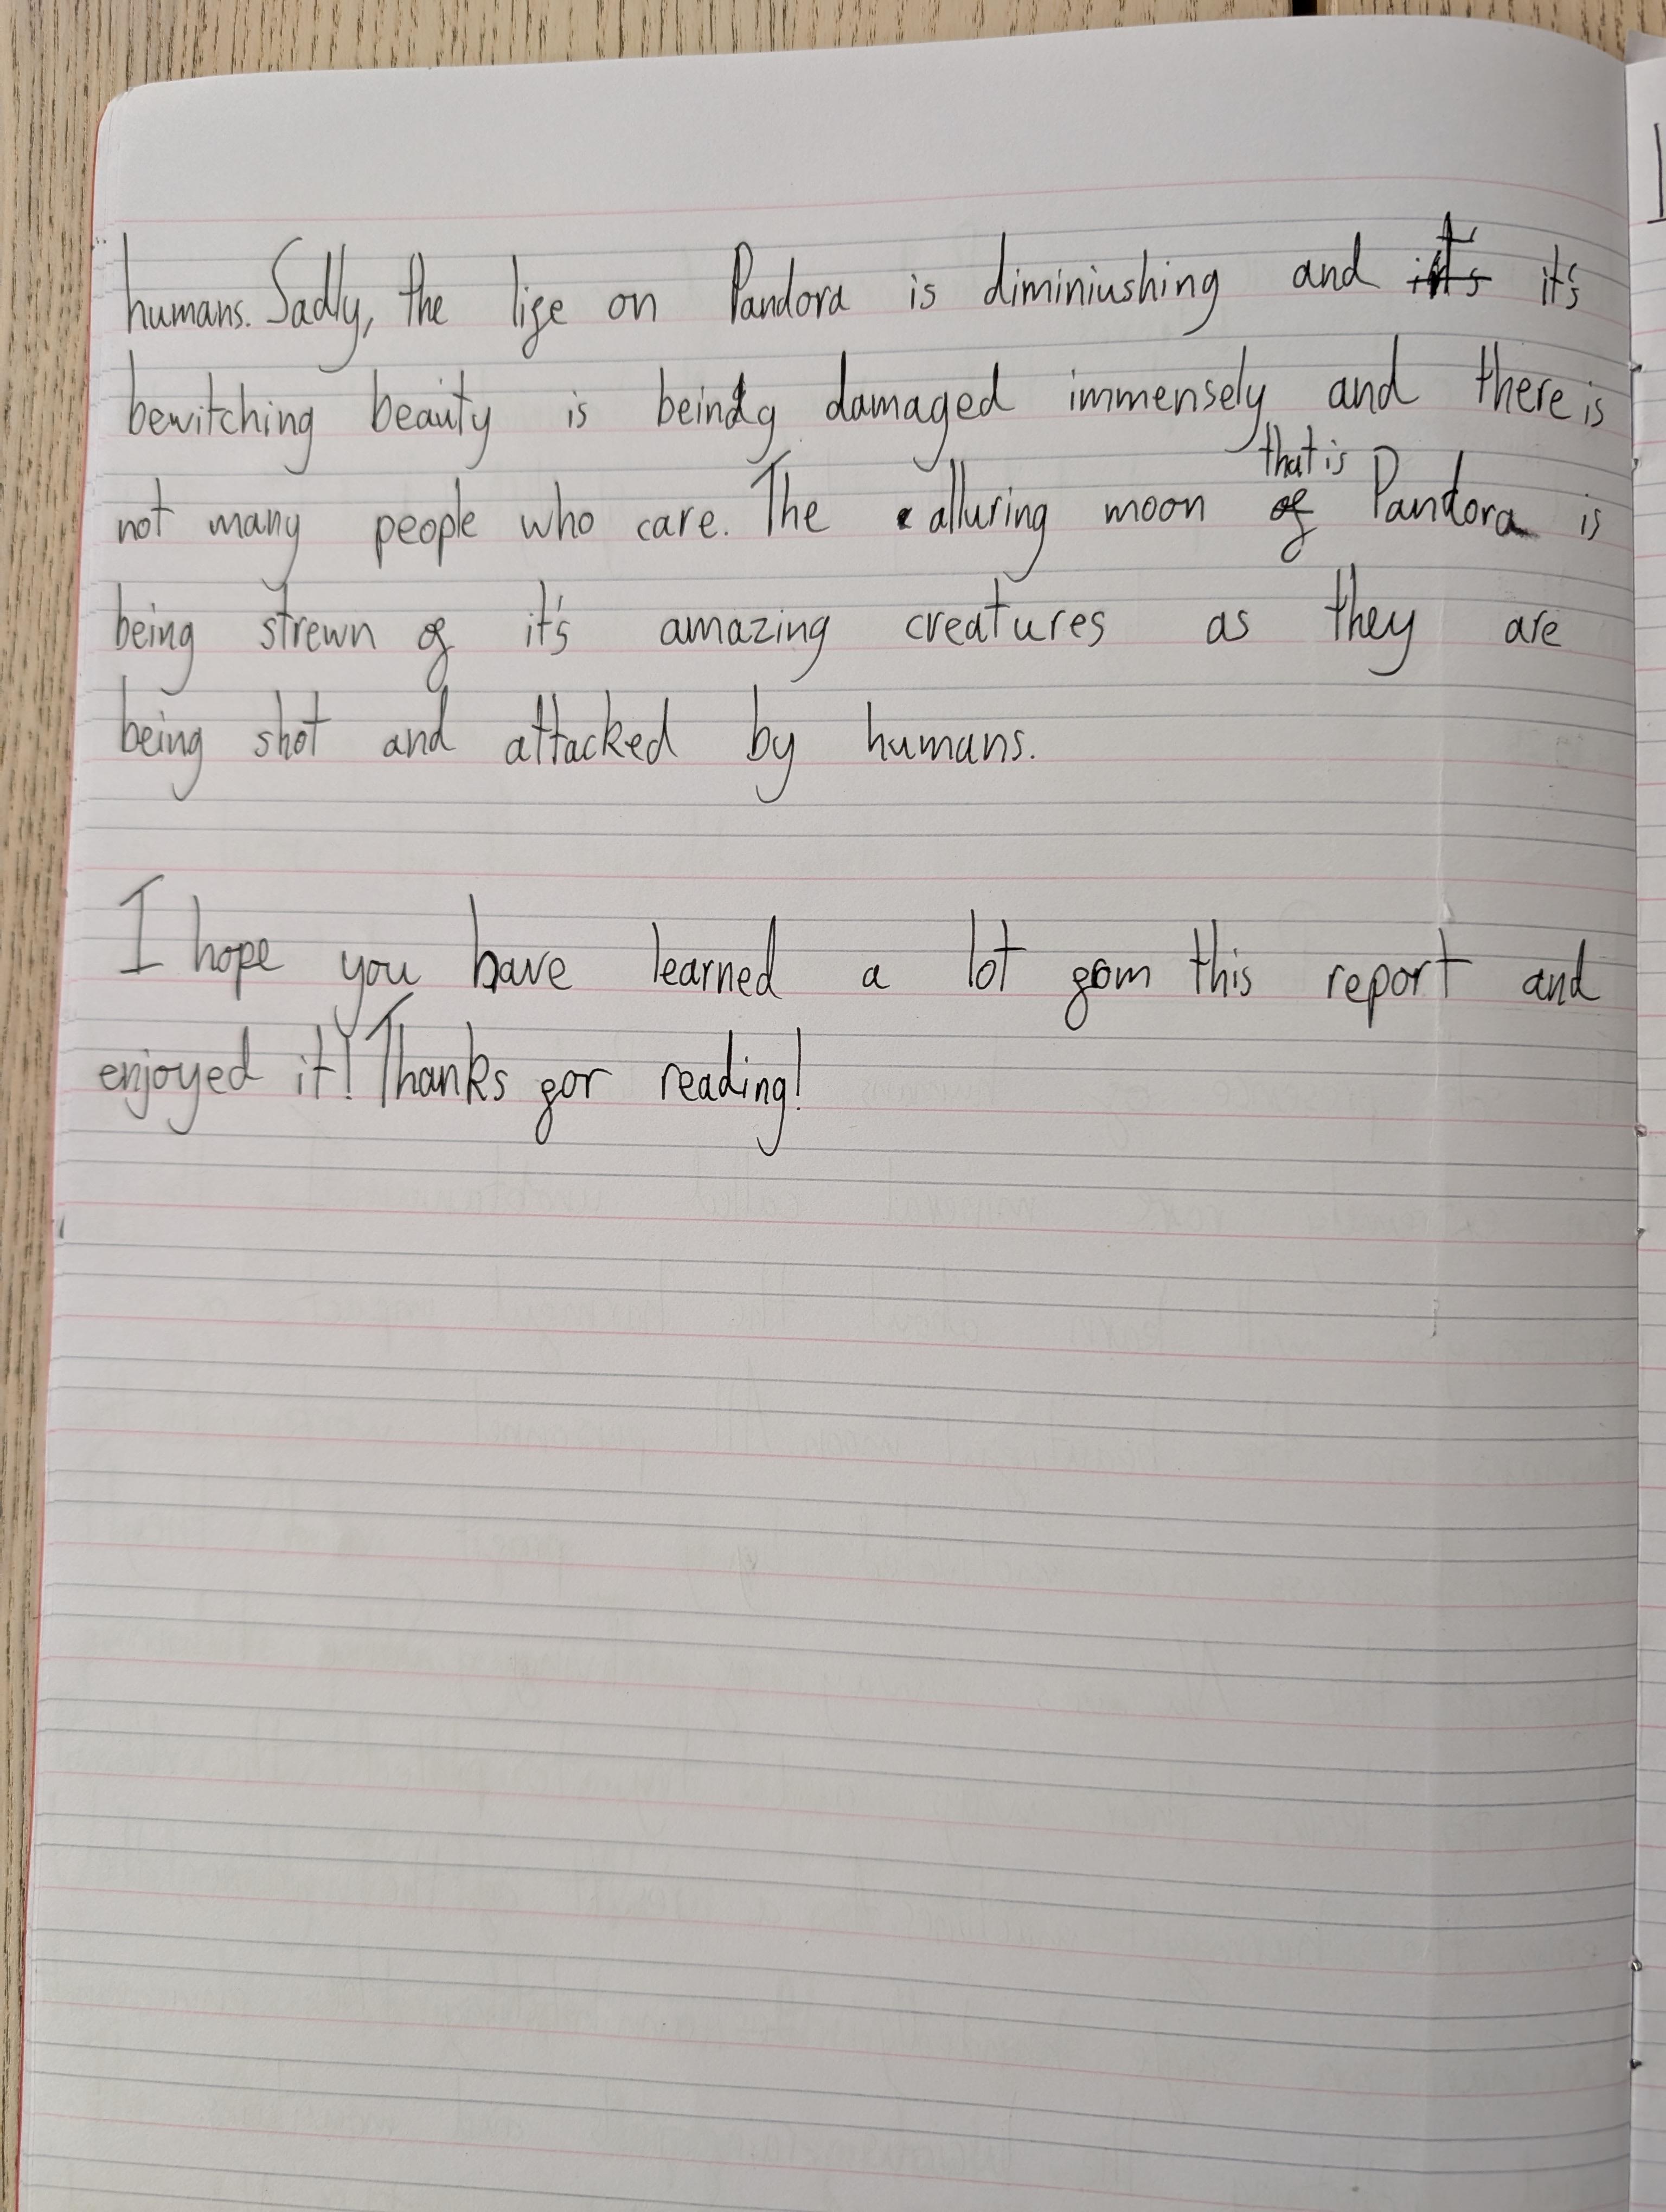 humans. Sadly, the life on Pandora is diminiushing and it's it's
bewitching beauty is being damaged immensely and there is
not many people who care. The alluring moon of that is Pandora is
being strewn of it's amazing creatures as they are
being shot and attacked by humans.
I hope you have learned a lot fom this report and
enjoyed it! Thanks for reading!